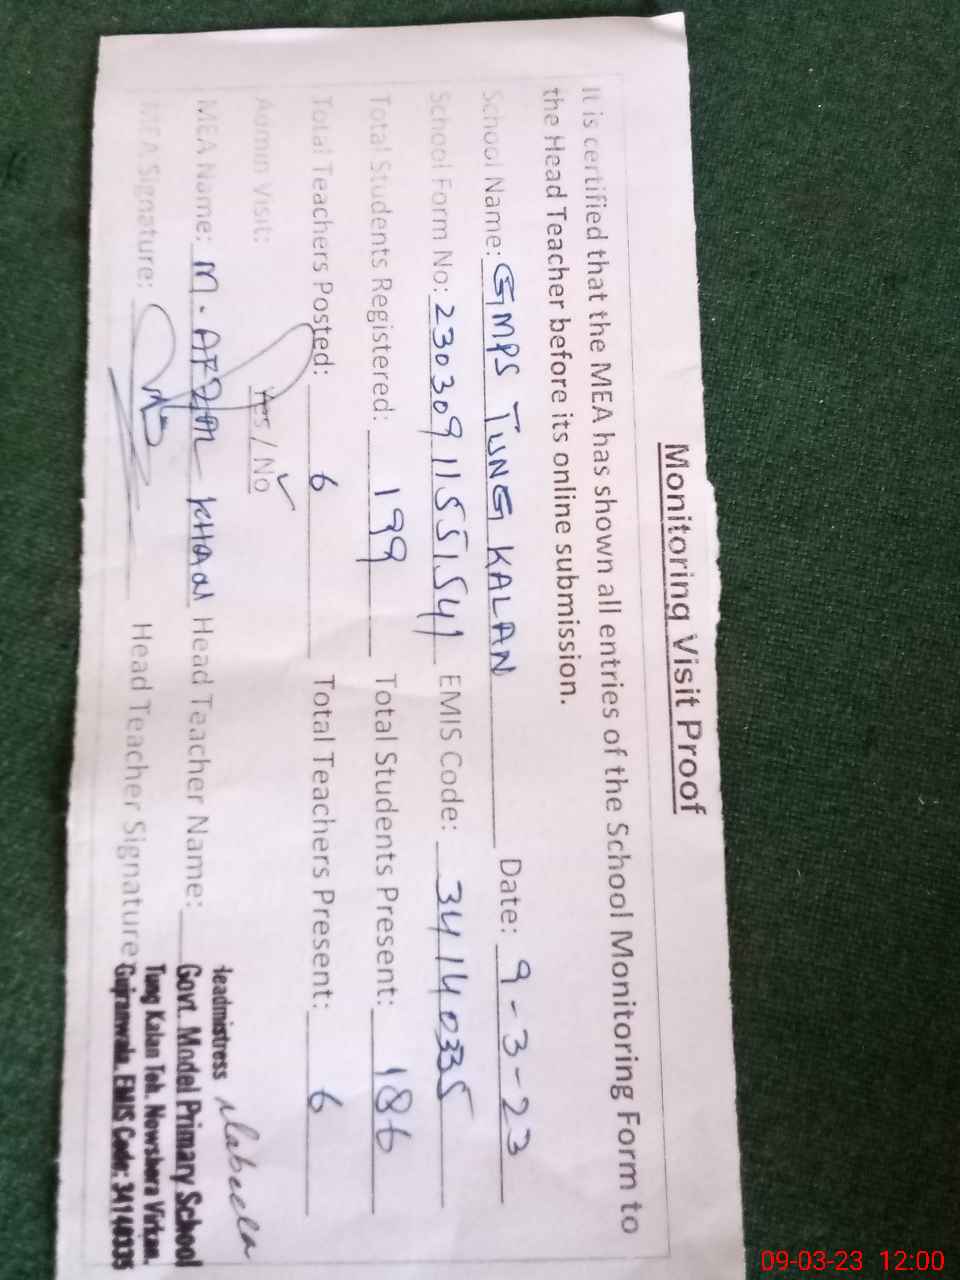 Monitoring Visit Proof
It is certified that the MEA has shown all entries of the School Monitoring Form to
the Head Teacher before its online submission.
School Name: GMPS TUNG KALAN Date: 9-3-23
School Form No: 230309115515541 EMIS Code: 34140335
Total Students Registered: 199 Total Students Present: 186
Total Teachers Posted: 6 Total Teachers Present: 6
Admin Visit: Yes / No
MEA Name: M. AFZAL KHAN Head Teacher Name:
MEA Signature: Head Teacher Signature:
Headmistress Nabeela
Govt. Model Primary School
Tung Kalan Teh. Nowshera Virkan.
Gujranwala. EMIS Code: 34140335
09-03-23 12:00